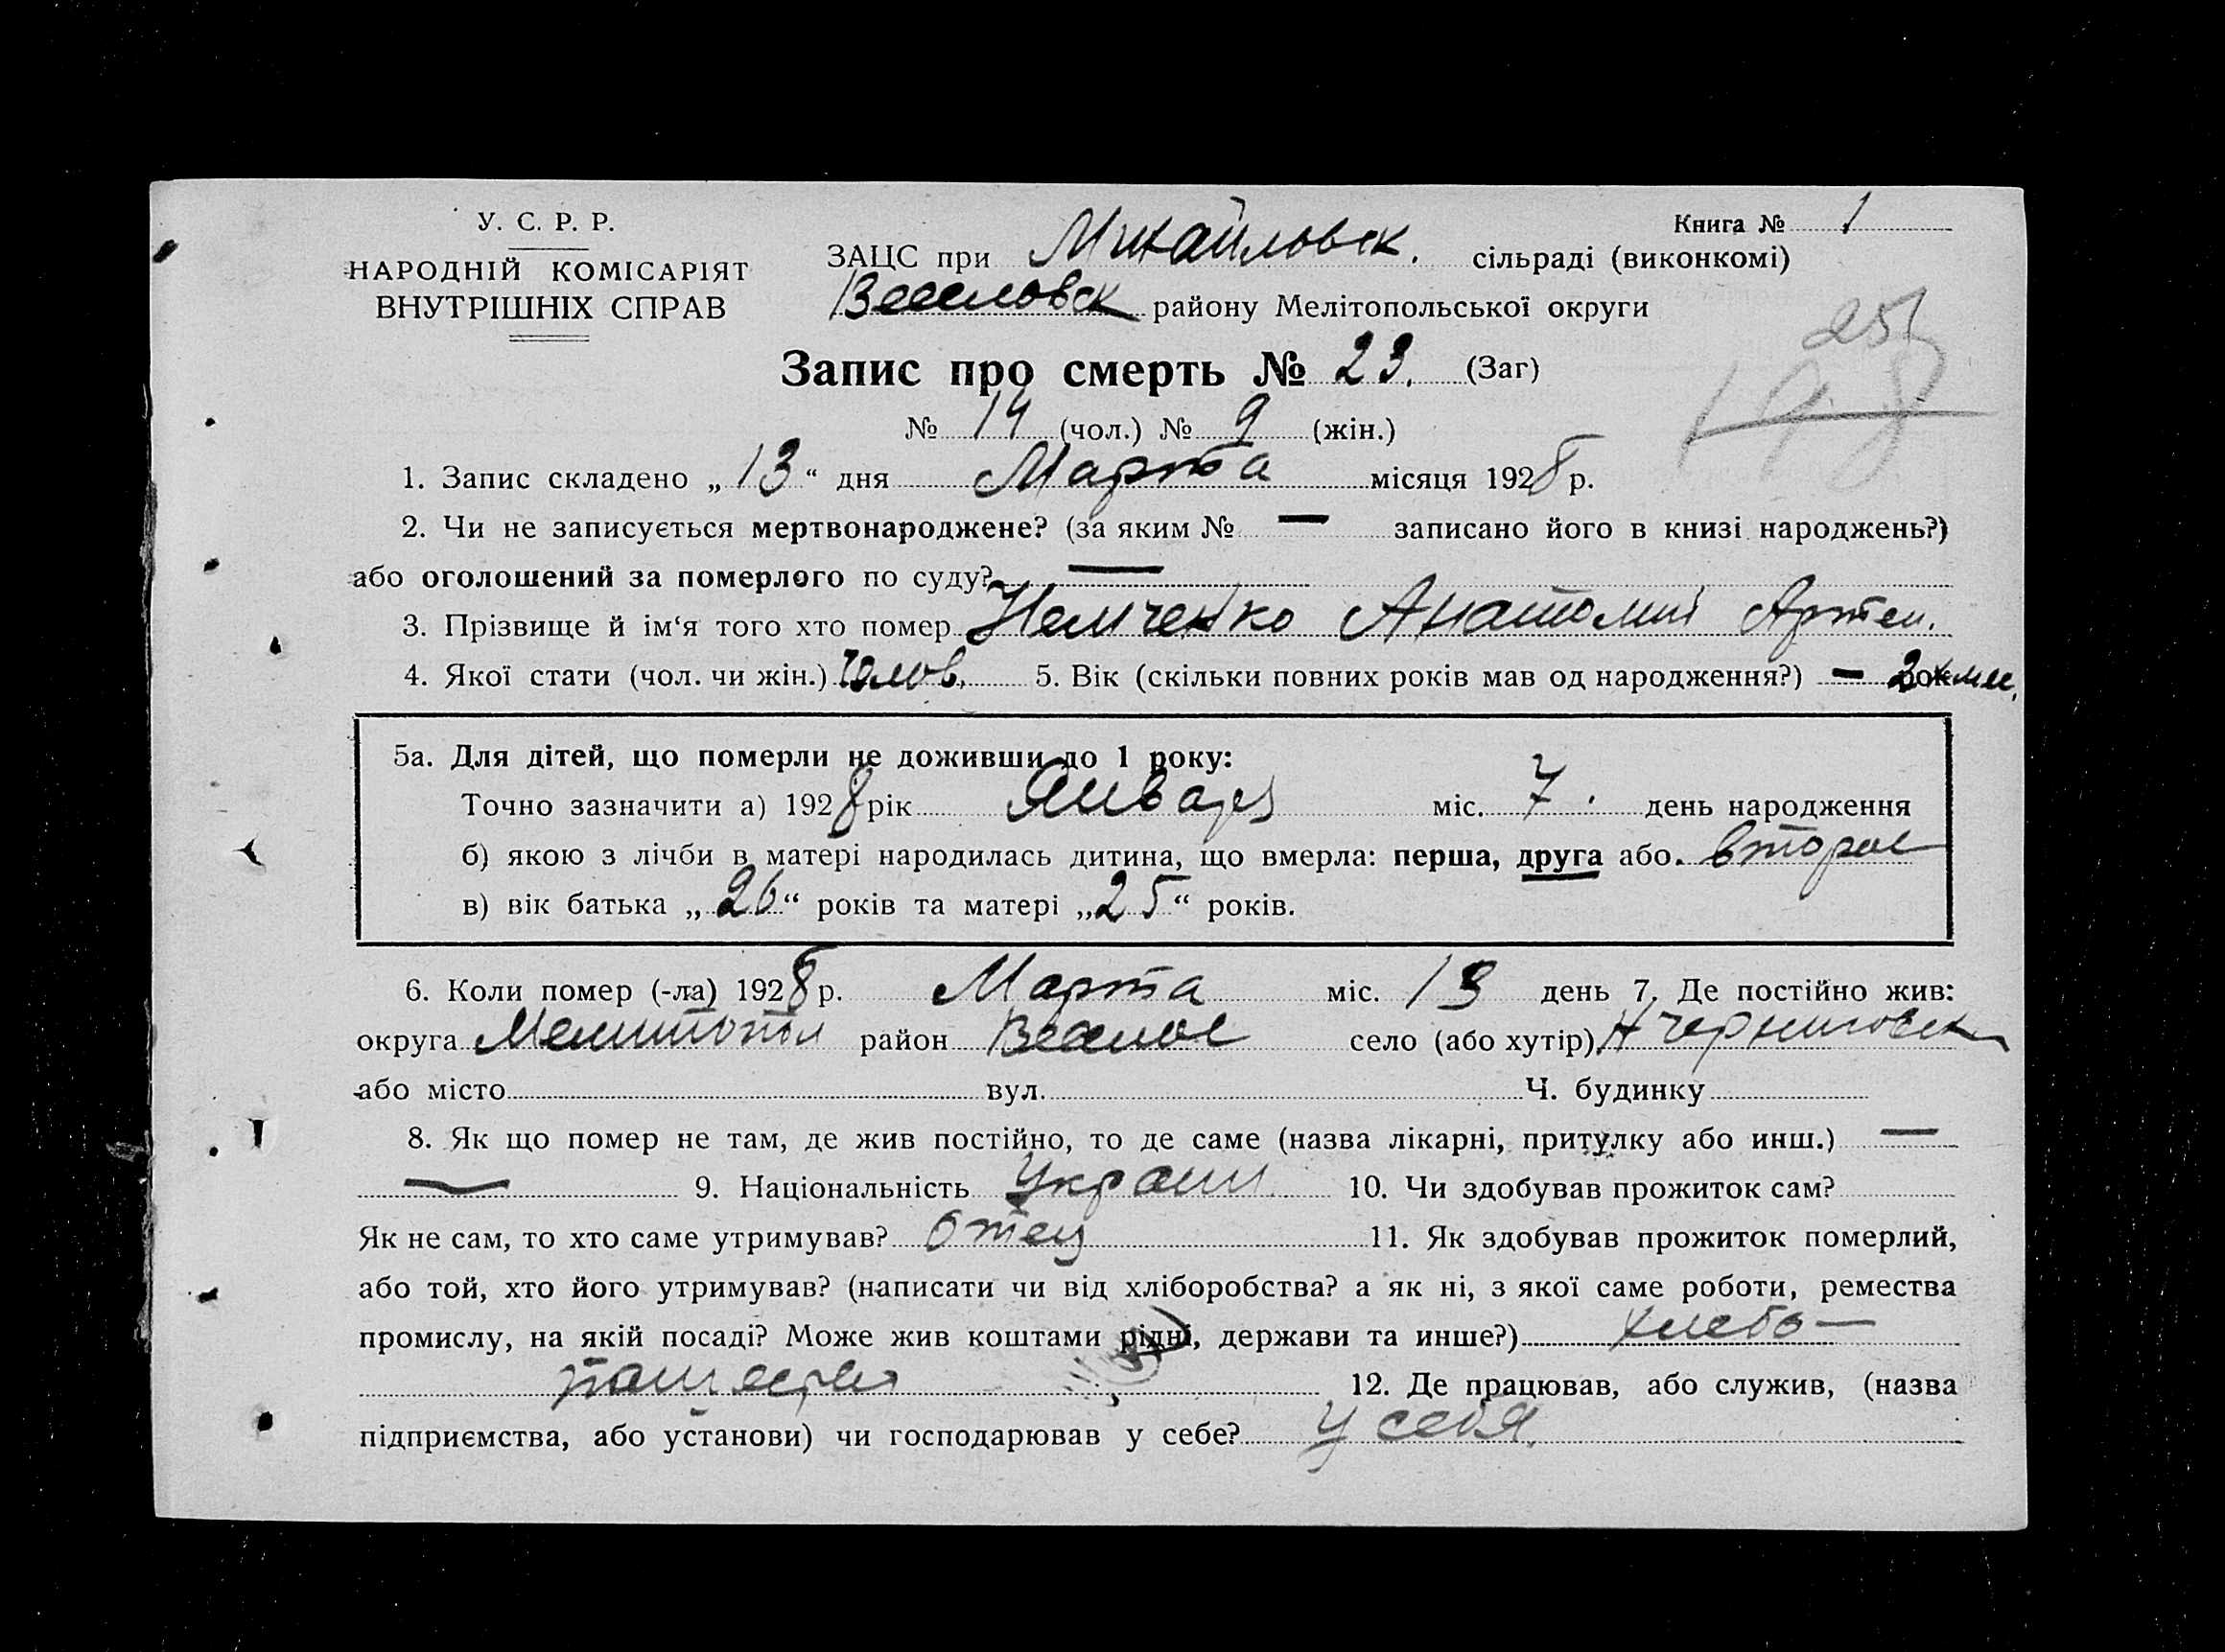 У. С. Р. Р.
НАРОДНІЙ КОМІСАРІЯТ
ВНУТРІШНІХ СПРАВ
Книга № 1
ЗАЦС при Михайловск. сільраді (виконкомі)
Веселовск району Мелітопольської округи
25
Запис про смерть № 23. (Заг)
№ 14 (чол.) № 9 (жін.)
1. Запис складено „13“ дня Марта місяця 1928 р.
2. Чи не записується мертвонароджене? (за яким № — записано його в книзі народжень?)
або оголошений за померлого по суду? —
3. Прізвище й ім‘я того хто помер Немченко Анатолий Артем.
4. Якої стати (чол. чи жін.) Чолов. 5. Вік (скільки повних років мав од народження?) —
5а. Для дітей, що померли не доживши до 1 року:
Точно зазначити а) 1928 рік Января міс. 7. день народження
б) якою з лічби в матері народилась дитина, що вмерла: перша, друга або. второе
в) вік батька „26“ років та матері „25“ років.
6. Коли помер (-ла) 1928 р. Марта міс. 13 день 7. Де постійно жив:
округа Мелитопол район Веселое село (або хутір) Н Черниговск
або місто вул. Ч. будинку
8. Як що помер не там, де жив постійно, то де саме (назва лікарні, притулку або инш.) —
— 9. Національність Украин. 10. Чи здобував прожиток сам?
Як не сам, то хто саме утримував? Отец 11. Як здобував прожиток померлий,
або той, хто його утримував? (написати чи від хліборобства? а як ні, з якої саме роботи, ремества
промислу, на якій посаді? Може жив коштами рідні, держави та инше?) хлебо-
пашество 12. Де працював, або служив, (назва
підприємства, або установи) чи господарював у себе? У себя.